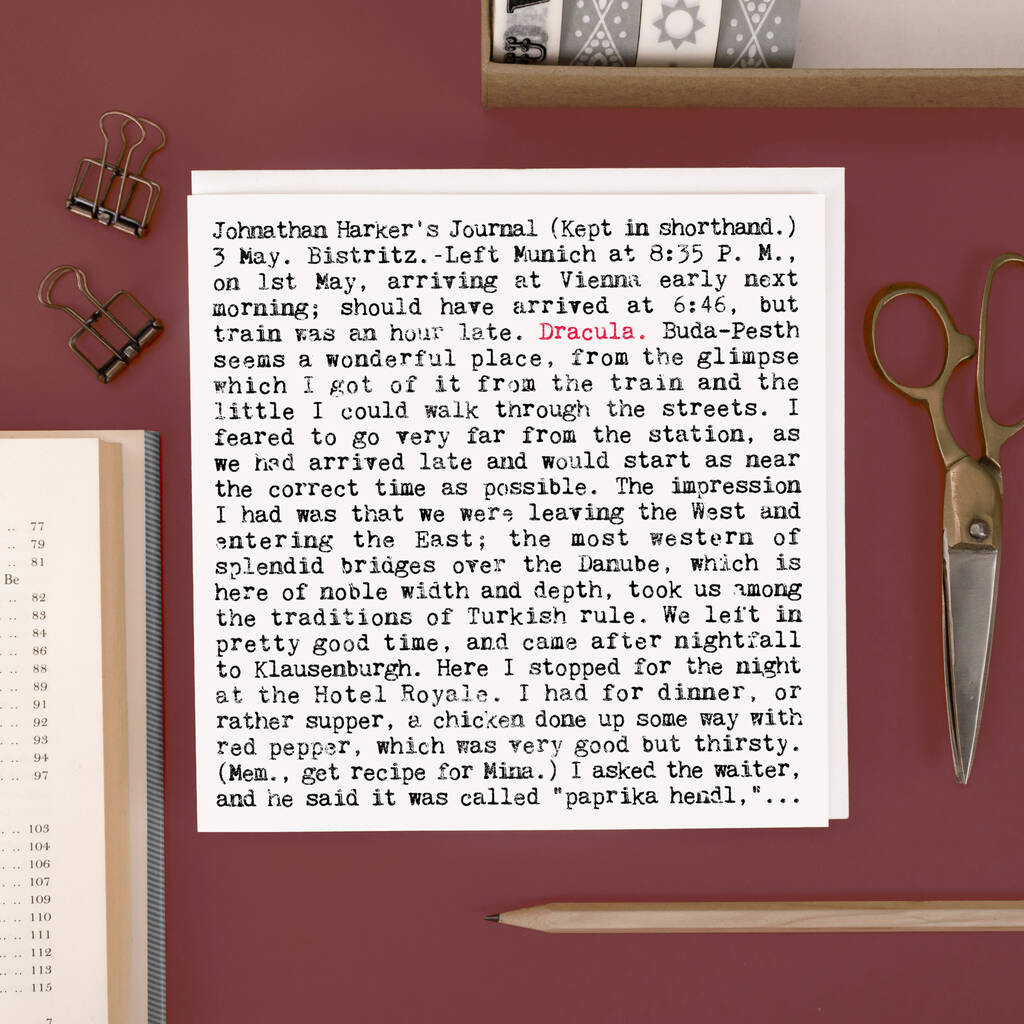 Johnathan Harker's Journal (Kept in shorthand.)
3 May. Bistritz.-Left Munich at 8:35 P. M.,
on 1st May, arriving at Vienna early next
morning; should have arrived at 6:46, but
train was an hour late. Dracula. Buda-Pesth
seems a wonderful place, from the glimpse
which I got of it from the train and the
little I could walk through the streets. I
feared to go very far from the station, as
we had arrived late and would start as near
the correct time as possible. The impression
I had was that we were leaving the West and
entering the East; the most western of
splendid bridges over the Danube, which is
here of noble width and depth, took us among
the traditions of Turkish rule. We left in
pretty good time, and came after nightfall
to Klausenburgh. Here I stopped for the night
at the Hotel Royale. I had for dinner, or
rather supper, a chicken done up some way with
red pepper, which was very good but thirsty.
(Mem., get recipe for Mina.) I asked the waiter,
and he said it was called "paprika hendl,"...
.. 77
.. 79
.. 81
Be
.. 82
.. 83
.. 84
.. 86
.. 88
.. 89
.. 91
.. 92
.. 93
.. 94
.. 97
.. 103
.. 104
.. 106
.. 107
.. 109
.. 110
.. 111
.. 112
.. 113
.. 115